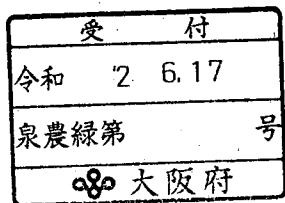 受付
令和 '2 6.17
泉農緑第 号
大阪府